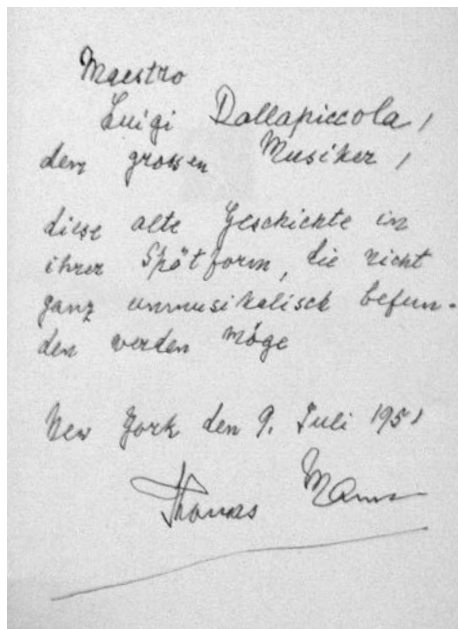 Maestro
Luigi Dallapiccola,
dem grossen Musiker,
diese alte Geschichte in
ihrer Spätform, die nicht
ganz unmusikalisch befun-
den werden möge
New York den 9. Juli 1951
Thomas Mann